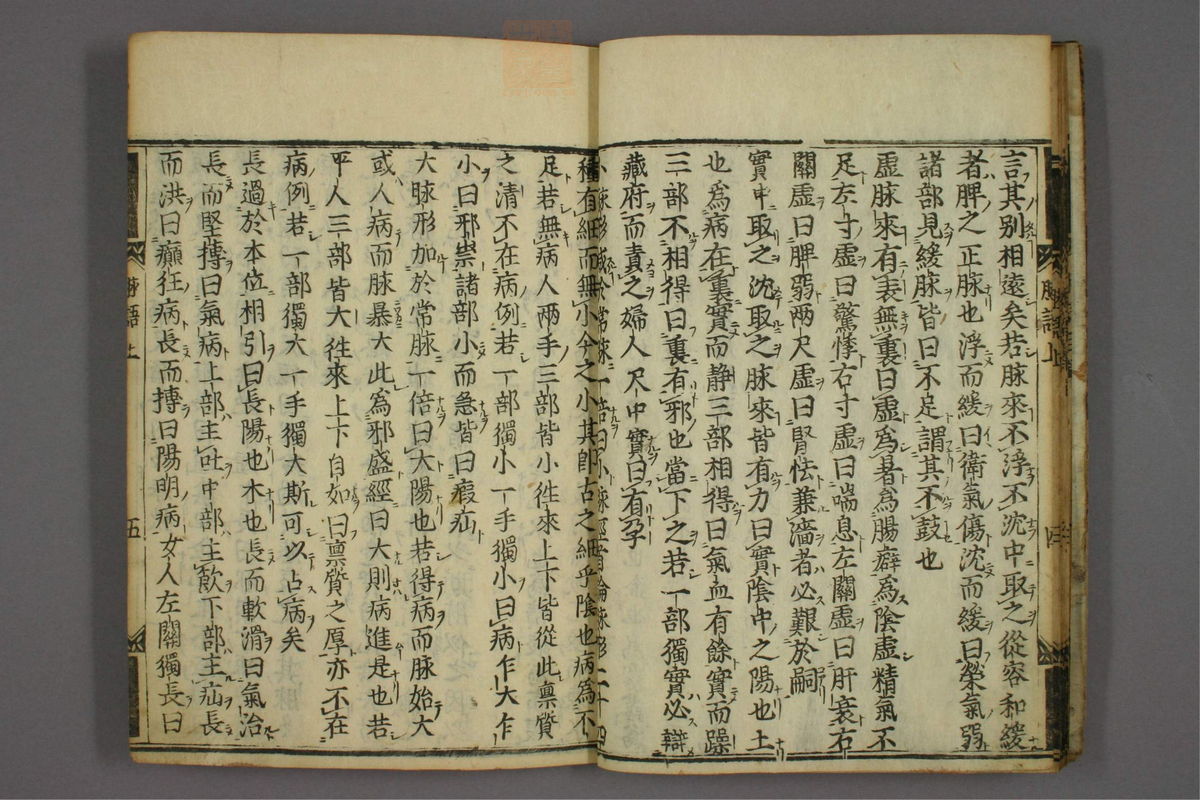 言其别相遠矣若脉來不浮不沈中取之從容和緩
者脾之正脉也浮而緩曰衛氣傷沈而緩曰榮氣弱
諸部見緩脉皆曰不足謂其不鼓也
虛脉來有表無裏曰虛爲暑爲腸癖爲陰虛精氣不
足左寸虛曰驚悸右寸虛曰喘息左關虛曰肝衰右
關虛曰脾弱兩尺虛曰腎怯兼濇者必艱於嗣
實中取之沈取之脉來皆有力曰實陰中之陽也土
也爲病在裏實而静三部相得曰氣血有餘實而躁
三部不相得曰裏有邪也當下之若一部獨實必辯
藏府而責之婦人尺中實曰有孕
小脉形減於常脉一倍曰小脉經首論脉形二十四
種有細而無小今之小其卽古之細乎陰也病爲不
足若無病人兩手三部皆小徃來上下皆從此禀質
之清不在病例若一部獨小一手獨小曰病乍大乍
小曰邪祟諸部小而急皆曰瘕疝
大脉形加於常脉一倍曰大陽也若得病而脉始大
或人病而脉暴大此爲邪盛經曰大則病進是也若
平人三部皆大徃來上下自如曰禀質之厚亦不在
病例若一部獨大一手獨大斯可以占病矣
長過於本位相引曰長陽也木也長而軟滑曰氣治
長而堅摶曰氣病上部主吐中部主飮下部主疝長
而洪曰癲狂病長而摶曰陽明病女人左關獨長曰
脉語上
四
脉語上
五